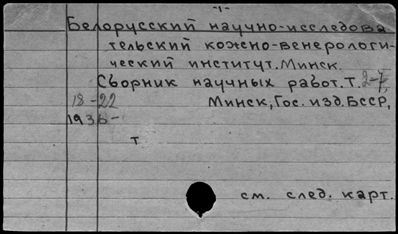 -1-
Белорусский научно-исследова
тельский кожно-венерологи-
ческий институт. Минск.
Сборник научных работ. Т. 2-7,
18-22 Минск, Гос. изд. БССР,
1936-
т
см. след. карт.